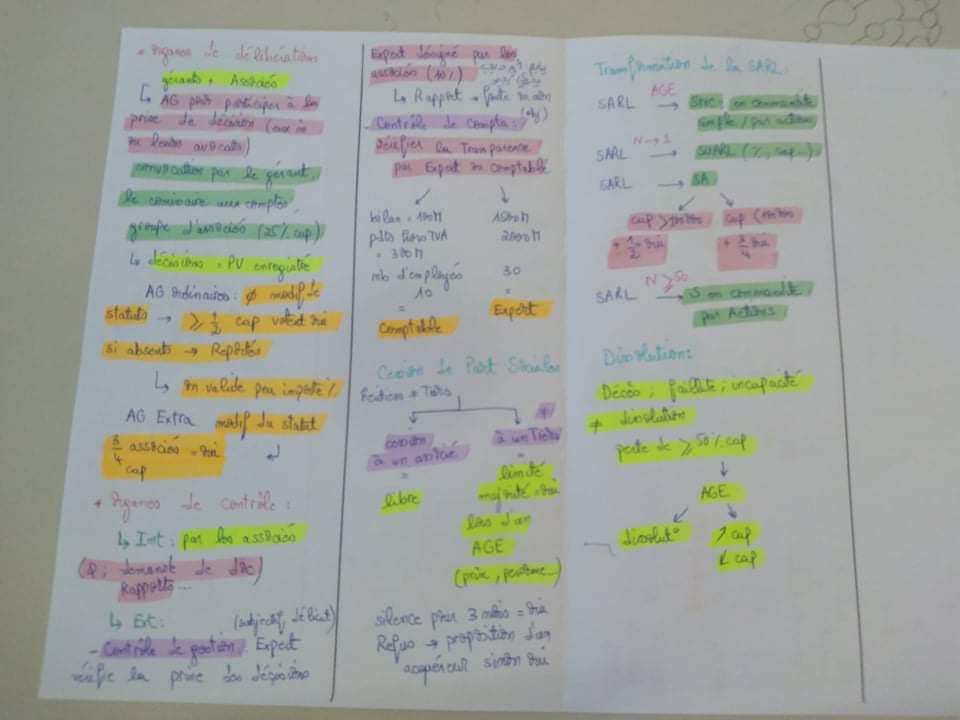 * Organes de délibération
gérants + Associés
↳ AG pour participer à la
prise de décision (eux m̂
ou leurs avocats)
convocation par le gérant,
le commissaire aux comptes,
groupe d'associés (25% cap)
↳ décisions = PV enregistré
AG Ordinaires : ∅ modif de
statuts → ≥ 1/2 cap votent oui
si absents → Reportés
↳ on valide peu importe %
AG Extra modif du statut
3/4 associés = oui ↲
cap
* Organes de contrôle :
↳ Int : par les associés
(Q ; demande de doc)
Rapports ...
↳ Ext : (subjectif, délicat)
- Contrôle de gestion : Expert
vérifie la prise des décisions
Expert désigné par les
associés (10%)
↳ Rapport →
(obj)
- Contrôle de compta :
vérifier la Transparence
par Expert ou comptable
bilan = 100M 1500M
pdts hors TVA 2000M
= 300M
nb d'employés 30
10 =
= Expert
Comptable
Cession de Part Sociales
Héritiers = Tiers
cession à un Tiers
à un associé =
= limité
libre majorité = oui
lors d'un
AGE
(prix, personne...)
silence pour 3 mois = oui
Refus → proposition d'un
acquéreur sinon oui
Transformation de la SARL.
AGE
SARL → SNC. en commandite
simple / par actions
N → 1
SARL → SUARL (%, cap...)
SARL → SA
+ 1/2 = oui + 3/4 oui
N ≥ 50
SARL → S en commandite
par Actions
Dissolution :
Décès ; faillite ; incapacité
≠ dissolution
perte de ≥ 50% cap
↓
AGE
dissolut° ↗ cap
cap